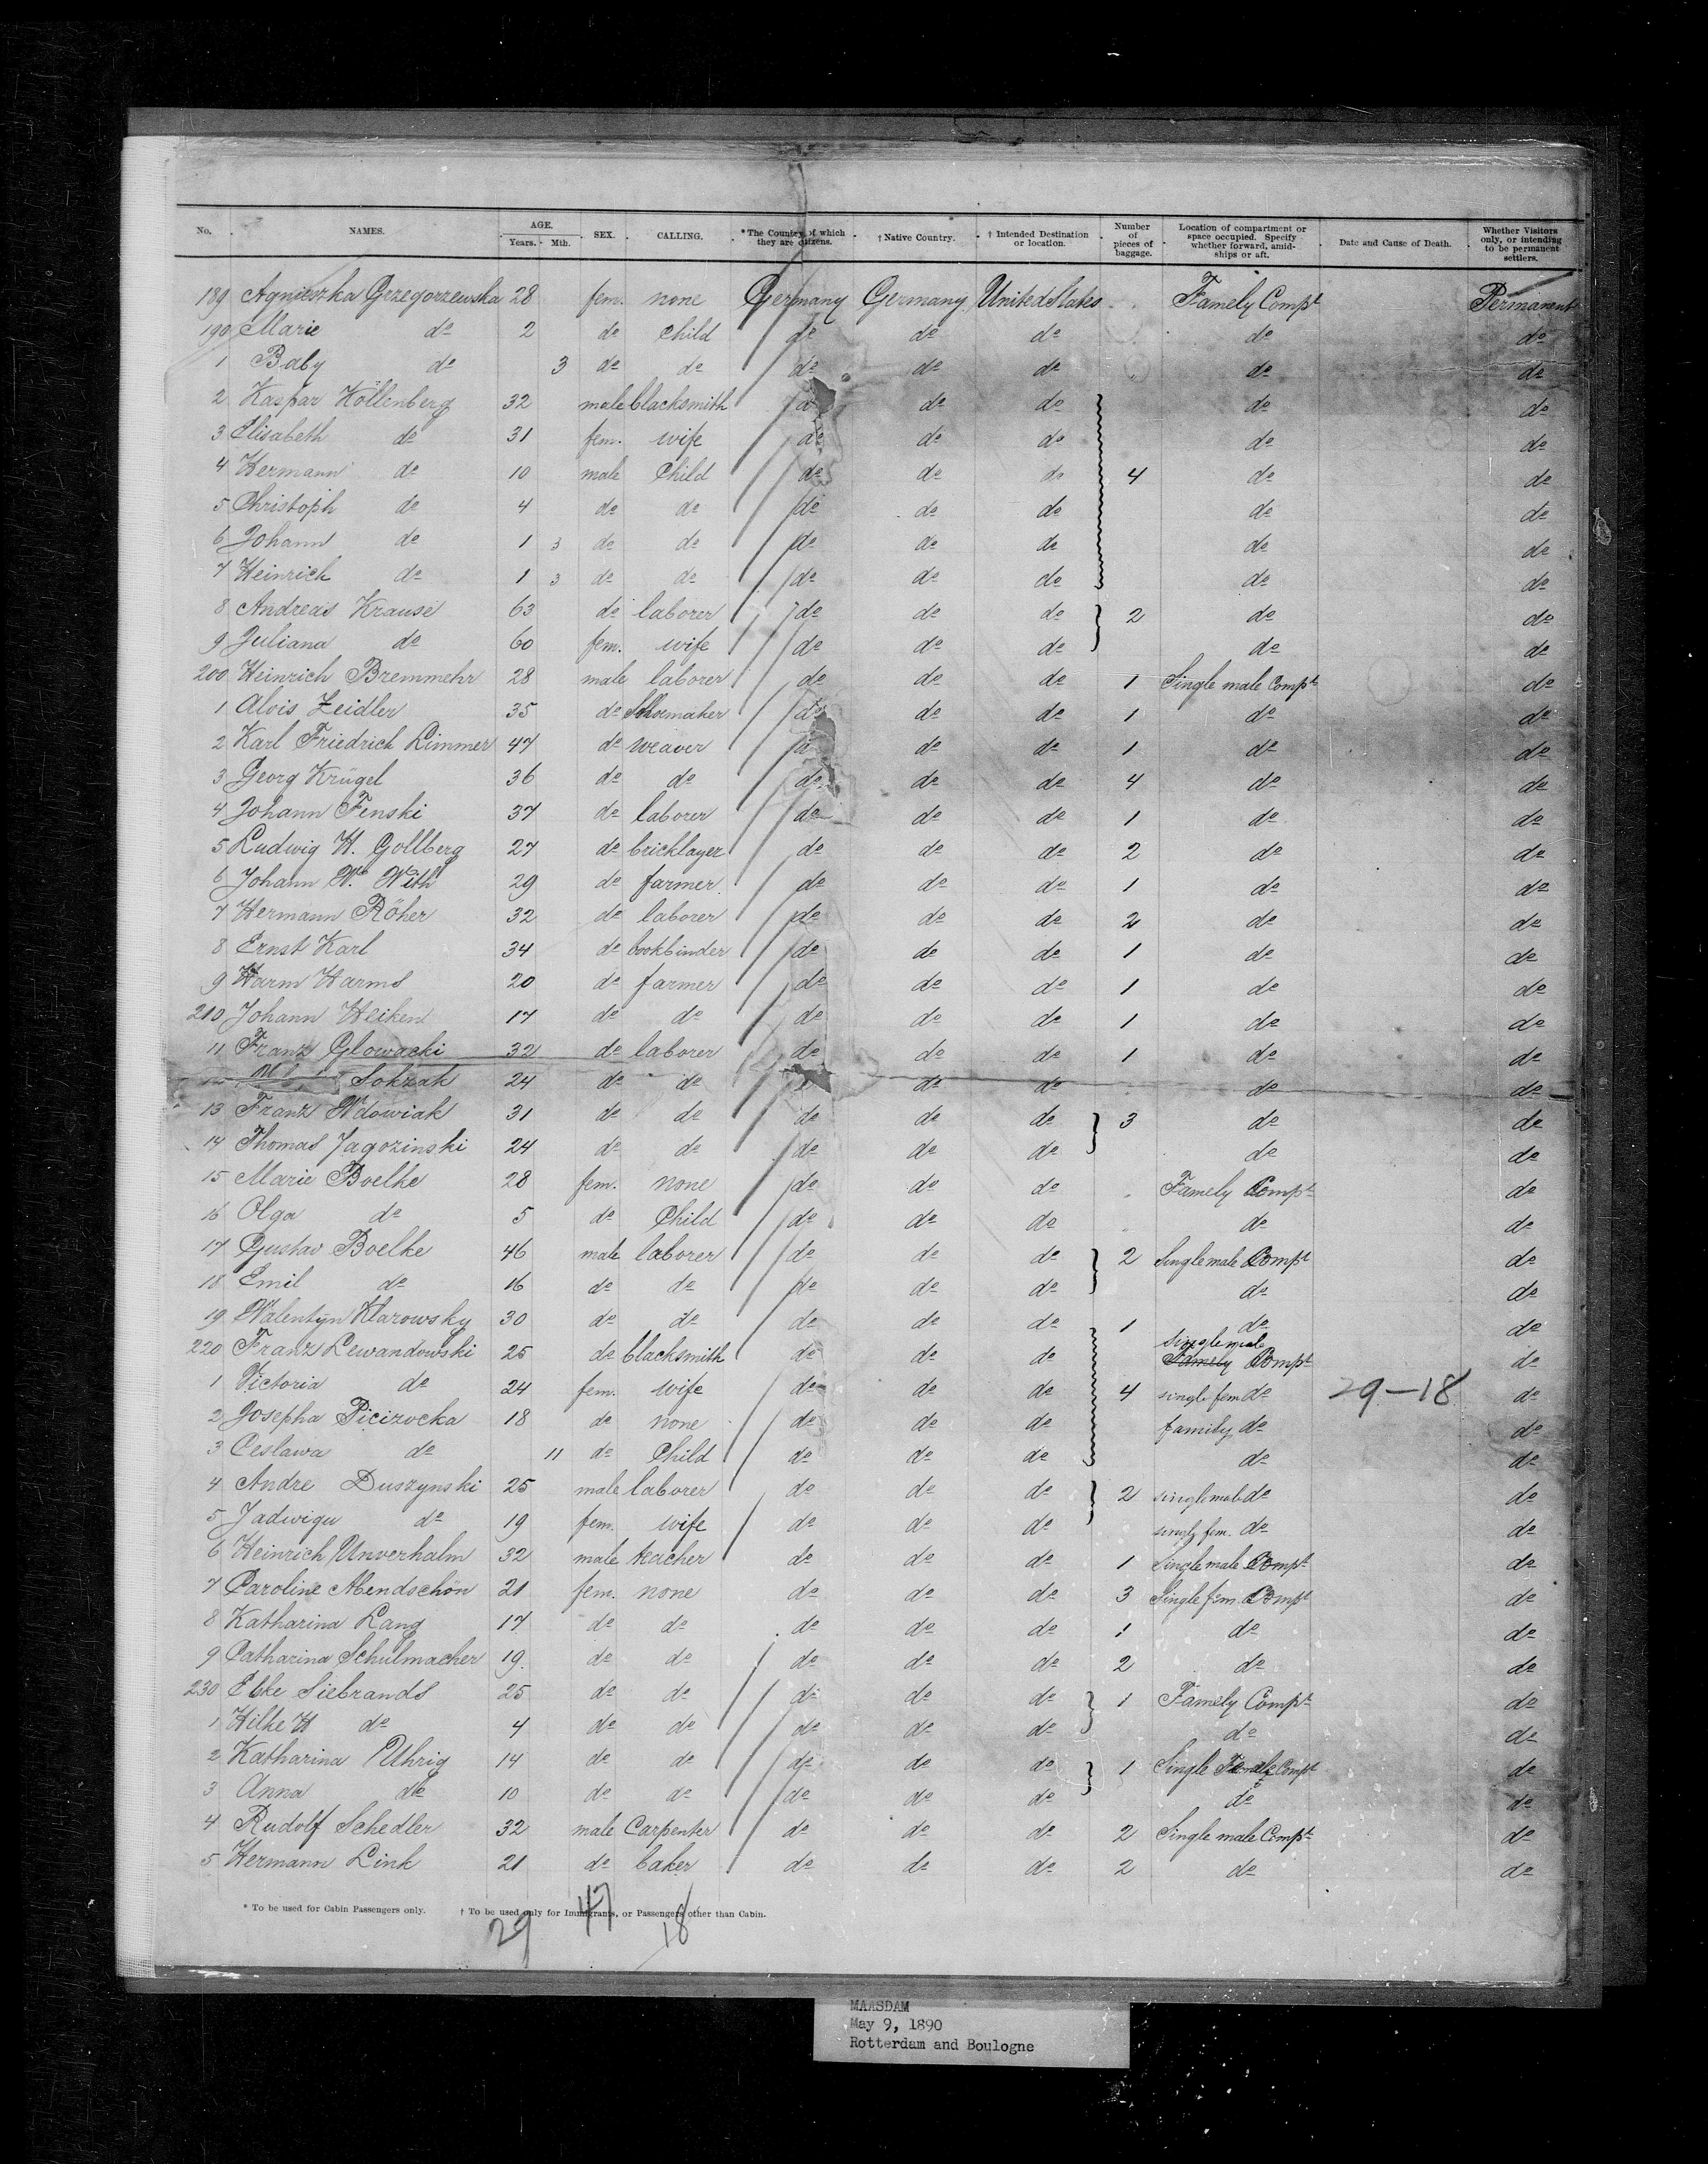 No. NAMES. AGE. Years. Mth. SEX. CALLING. *The Country of which they are citizens. †Native Country. †Intended Destination or location. Number of pieces of baggage. Location of compartment or space occupied. Specify whether forward, amidships or aft. Date and Cause of Death. Whether Visitors only, or intending to be permanent settlers.
189 Agnieszka Grzegorzewska 28 fem. none Germany Germany United States Famely Compt Permanent
190 Marie do 2 do Child do do do do do
1 Baby do 3 do do do do do do do
2 Kaspar Köllenberg 32 male blacksmith do do do do do
3 Elisabeth do 31 fem. wife do do do do do
4 Hermann do 10 male Child do do do 4 do do
5 Christoph do 4 do do do do do do do
6 Johann do 1 3 do do do do do do do
7 Heinrich do 1 3 do do do do do do do
8 Andreas Krause 63 do laborer do do do 2 do do
9 Juliana do 60 fem. wife do do do do do
200 Heinrich Bremmehr 28 male laborer do do do 1 Single male Compt do
1 Alois Zeidler 35 do Shoemaker do do do 1 do do
2 Karl Friedrich Limmer 47 do weaver do do 1 do do
3 Georg Krügel 36 do do do do do 4 do do
4 Johann Fenski 37 do laborer do do do 1 do do
5 Ludwig H. Gollberg 27 do bricklayer do do do 2 do do
6 Johann W. With 29 do farmer do do do 1 do do
7 Hermann Röher 32 do laborer do do do 2 do do
8 Ernst Karl 34 do bookbinder do do do 1 do do
9 Harm Harms 20 do farmer do do do 1 do do
210 Johann Heiken 17 do do do do do 1 do do
11 Franz Glowacki 32 do laborer do do do 1 do do
Sokzak 24 do do do do do do
13 Franz Wdowiak 31 do do do do do 3 do do
14 Thomas Jagozinski 24 do do do do do do do
15 Marie Boelke 28 fem. none do do do Famely Compt do
16 Olga do 5 do Child do do do do do
17 Gustav Boelke 46 male laborer do do do 2 Single male Compt do
18 Emil do 16 do do do do do do do
19 Walentyn Klarowsky 30 do do do do do 1 do do
220 Franz Lewandowski 25 do blacksmith do do do single male Famely Compt do
1 Victoria do 24 fem. wife do do do 4 single fem do 29-18 do
2 Josepha Picizocka 18 do none do do do family do do
3 Ceslawa do 11 do Child do do do do do
4 Andre Duszynski 25 male laborer do do do 2 single male do do
5 Jadwigu do 19 fem. wife do do do single fem. do do
6 Heinrich Unverhalm 32 male teacher do do do 1 Single male Compt do
7 Caroline Abendschön 21 fem. none do do do 3 Single fem. Compt do
8 Katharina Lang 17 do do do do do 1 do do
9 Catharina Schulmacher 19. do do do do do 2 do do
230 Ebke Siebrands 25 do do do do do 1 Famely Compt do
1 Hilke H do 4 do do do do do do do
2 Katharina Uhrig 14 do do do do do 1 Single Female Compt do
3 Anna do 10 do do do do do do do
4 Rudolf Schedler 32 male Carpenter do do do 2 Single male Compt do
5 Hermann Link 21 do baker do do do 2 do do
* To be used for Cabin Passengers only. † To be used only for Immigrants, or Passengers other than Cabin.
29 47 18
MAASDAM
May 9, 1890
Rotterdam and Boulogne